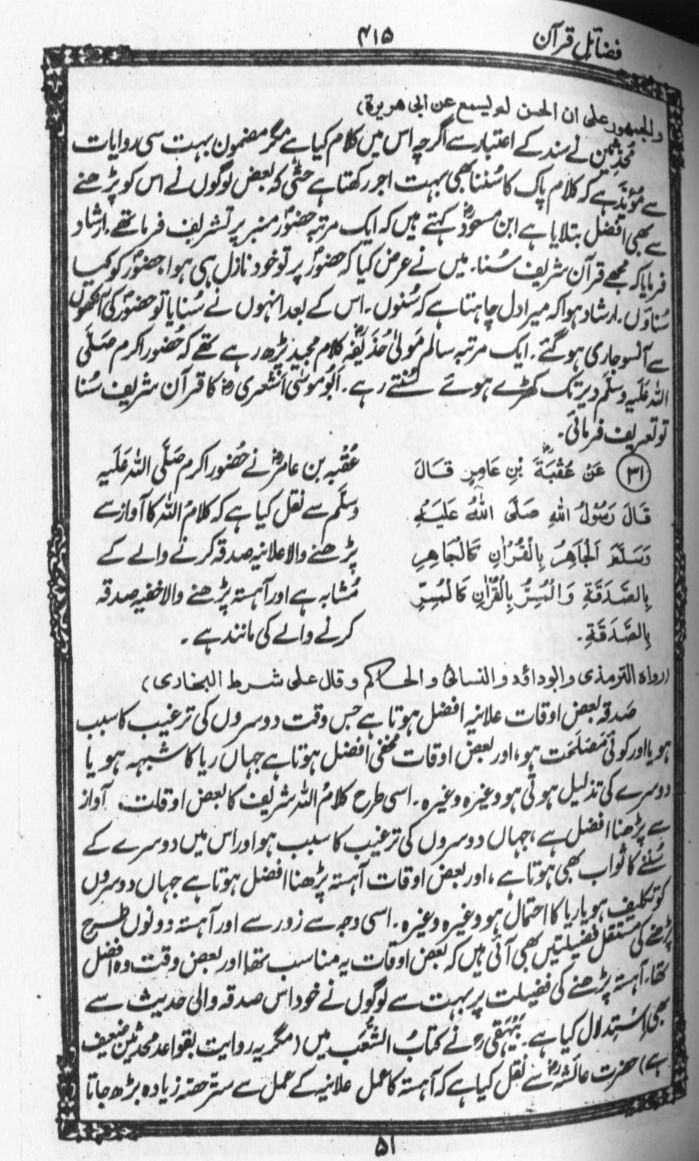 فضائل قرآن
۴۱۵
والجمهور علی ان الحسن لم یسمع عن ابی هریرة)
محدثین نے سند کے اعتبار سے اگرچہ اس میں کلام کیا ہے مگر مضمون بہت سی روایات
سے مؤید ہے کہ کلام پاک کا سننا بھی بہت اجر رکھتا ہے حتّٰی کہ بعض لوگوں نے اس کو پڑھنے
سے بھی افضل بتلایا ہے ابن مسعودؓ کہتے ہیں کہ ایک مرتبہ حضورؐ منبر پر تشریف فرما تھے۔ ارشاد
فرمایا کہ مجھے قرآن شریف سنا۔ میں نے عرض کیا کہ حضورؐ پر تو خود نازل ہی ہوا، حضورؐ کو کیا
سناؤں۔ ارشاد ہوا کہ میرا دل چاہتا ہے کہ سُنوں۔ اس کے بعد انہوں نے سُنایا تو حضورؐ کی آنکھوں
سے آنسو جاری ہوگئے۔ ایک مرتبہ سالم مَولیٰ حُذیفہؓ کلام مجید پڑھ رہے تھے کہ حُضور اکرم صَلَّی
اللہ عَلَیہِ وسلّم دیر تک کھڑے ہوئے سُنتے رہے۔ ابُو موسٰی اشعری رضؓ کا قرآن شریف سُنا
تو تعریف فرمائی۔
(۳۱) عَنْ عُقْبَةَؓ بْنِ عَامِرٍ قَالَ
قَالَ رَسُوْلُ اللهِ صَلَّی اللهُ عَلَيْهِ
وَسَلَّمَ اَلْجَاهِرُ بِالْقُرْاٰنِ كَالْجَاهِرِ
بِالصَّدَقَةِ وَالْمُسِرُّ بِالْقُرْاٰنِ كَالْمُسِرِّ
بِالصَّدَقَةِ۔
عُقبہ بن عامرؓ نے حُضور اکرم صَلَّی اللہ عَلَیہِ
وسلّم سے نقل کیا ہے کہ کلامُ اللہ کا آواز سے
پڑھنے والا علانیہ صدقہ کرنے والے کے
مُشابہ ہے اور آہستہ پڑھنے والا خفیہ صدقہ
کرنے والے کی مانند ہے۔
(رواه الترمذی وابوداؤد والنسائی والحاکم وقال علی شرط البخاری)
صدقہ بعض اوقات علانیہ افضل ہوتا ہے جس وقت دوسروں کی ترغیب کا سبب
ہو یا اور کوئی مَصلحَت ہو، اور بعض اوقات مخفی افضل ہوتا ہے جہاں ریا کا شبہہ ہو یا
دوسرے کی تذلیل ہوتی ہو وغیرہ وغیرہ۔ اسی طرح کلامُ اللہ شریف کا بعض اوقات آواز
سے پڑھنا افضل ہے، جہاں دوسروں کی ترغیب کا سبب ہو اور اس میں دوسرے کے
سُننے کا ثواب بھی ہوتا ہے، اور بعض اوقات آہستہ پڑھنا افضل ہوتا ہے جہاں دوسروں
کو تکلیف ہو یا ریا کا احتمال ہو وغیرہ وغیرہ۔ اسی وجہ سے زور سے اور آہستہ دونوں طرح
پڑھنے کی مستقل فضیلتیں بھی آئی ہیں کہ بعض اوقات یہ مناسب تھا اور بعض وقت وہ افضل
تھا۔ آہستہ پڑھنے کی فضیلت پر بہت سے لوگوں نے خود اس صدقہ والی حدیث سے
بھی استدلال کیا ہے۔ بَیہَقی رحؒ نے کتابُ الشُّعَب میں (مگر یہ روایت بقواعد محدثین ضعیف
ہے) حضرت عائشہؓ سے نقل کیا ہے کہ آہستہ کا عمل علانیہ کے عمل سے ستّر حصّہ زیادہ بڑھ جاتا
۵۱